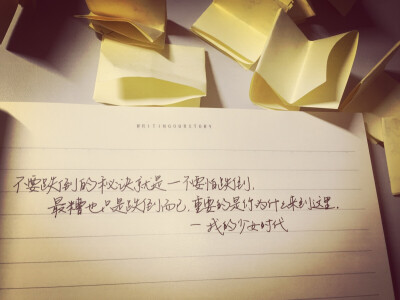 WRITINGOURSTORY
不要跌倒的秘诀就是一不要怕跌倒,
最糟也只是跌倒而已.重要的是你为什么来到这里.
—我的少女时代